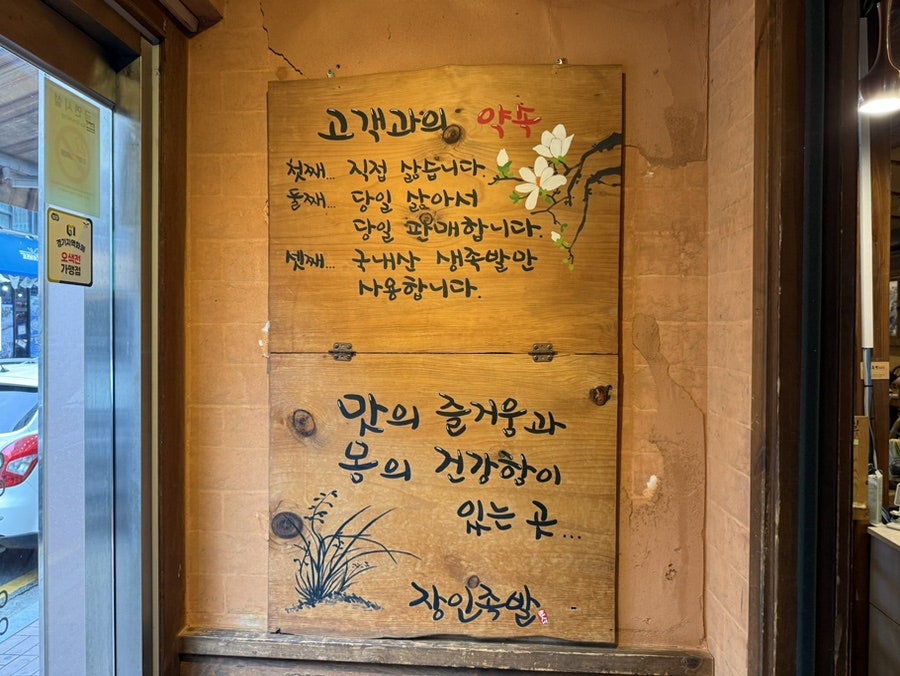 고객과의 약속
첫째... 직접 삶습니다.
둘째... 당일 삶아서
당일 판매합니다.
셋째... 국내산 생족발만
사용합니다.
맛의 즐거움과
몸의 건강함이
있는 곳...
장인족발
금연시설
경기지역화폐
오색전
가맹점